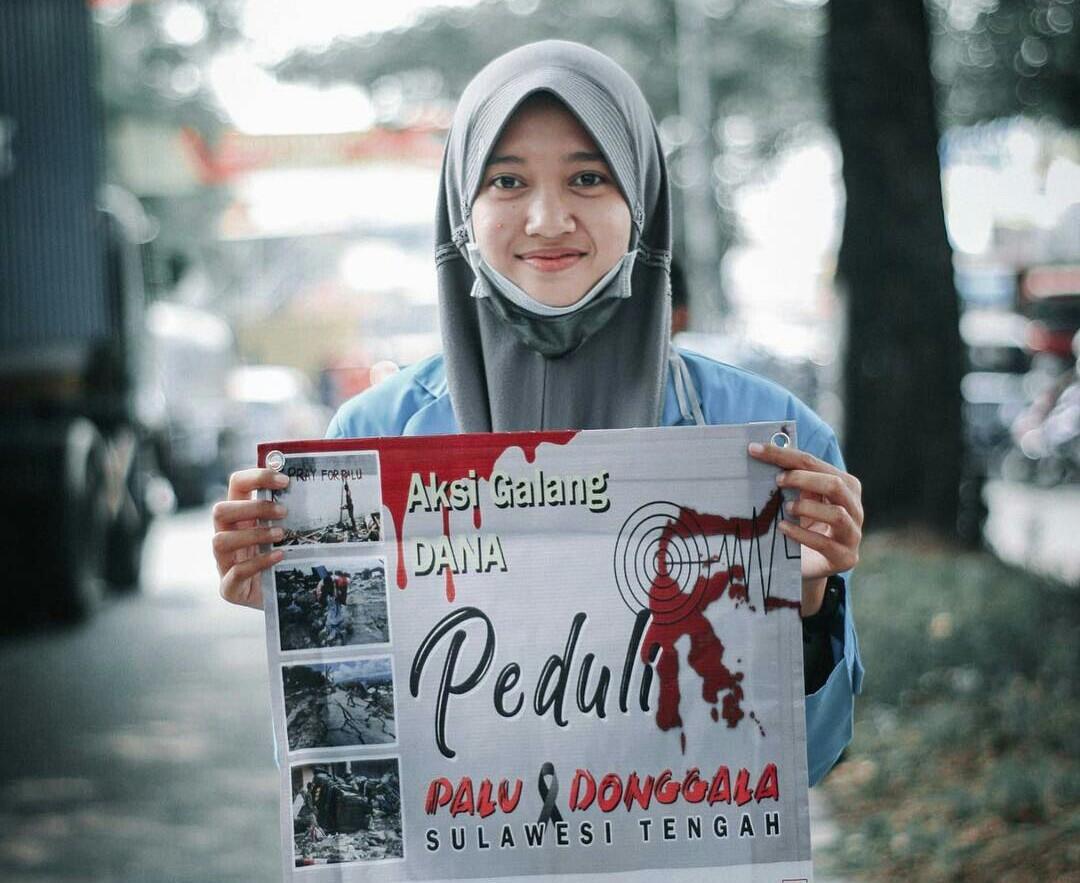 PRAY FOR PALU
Aksi Galang
DANA
Peduli
PALU DONGGALA
SULAWESI TENGAH